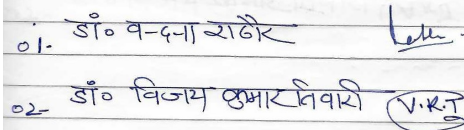 01- डॉ० वन्दना राठौर
02- डॉ० विजय कुमार तिवारी V.R.T